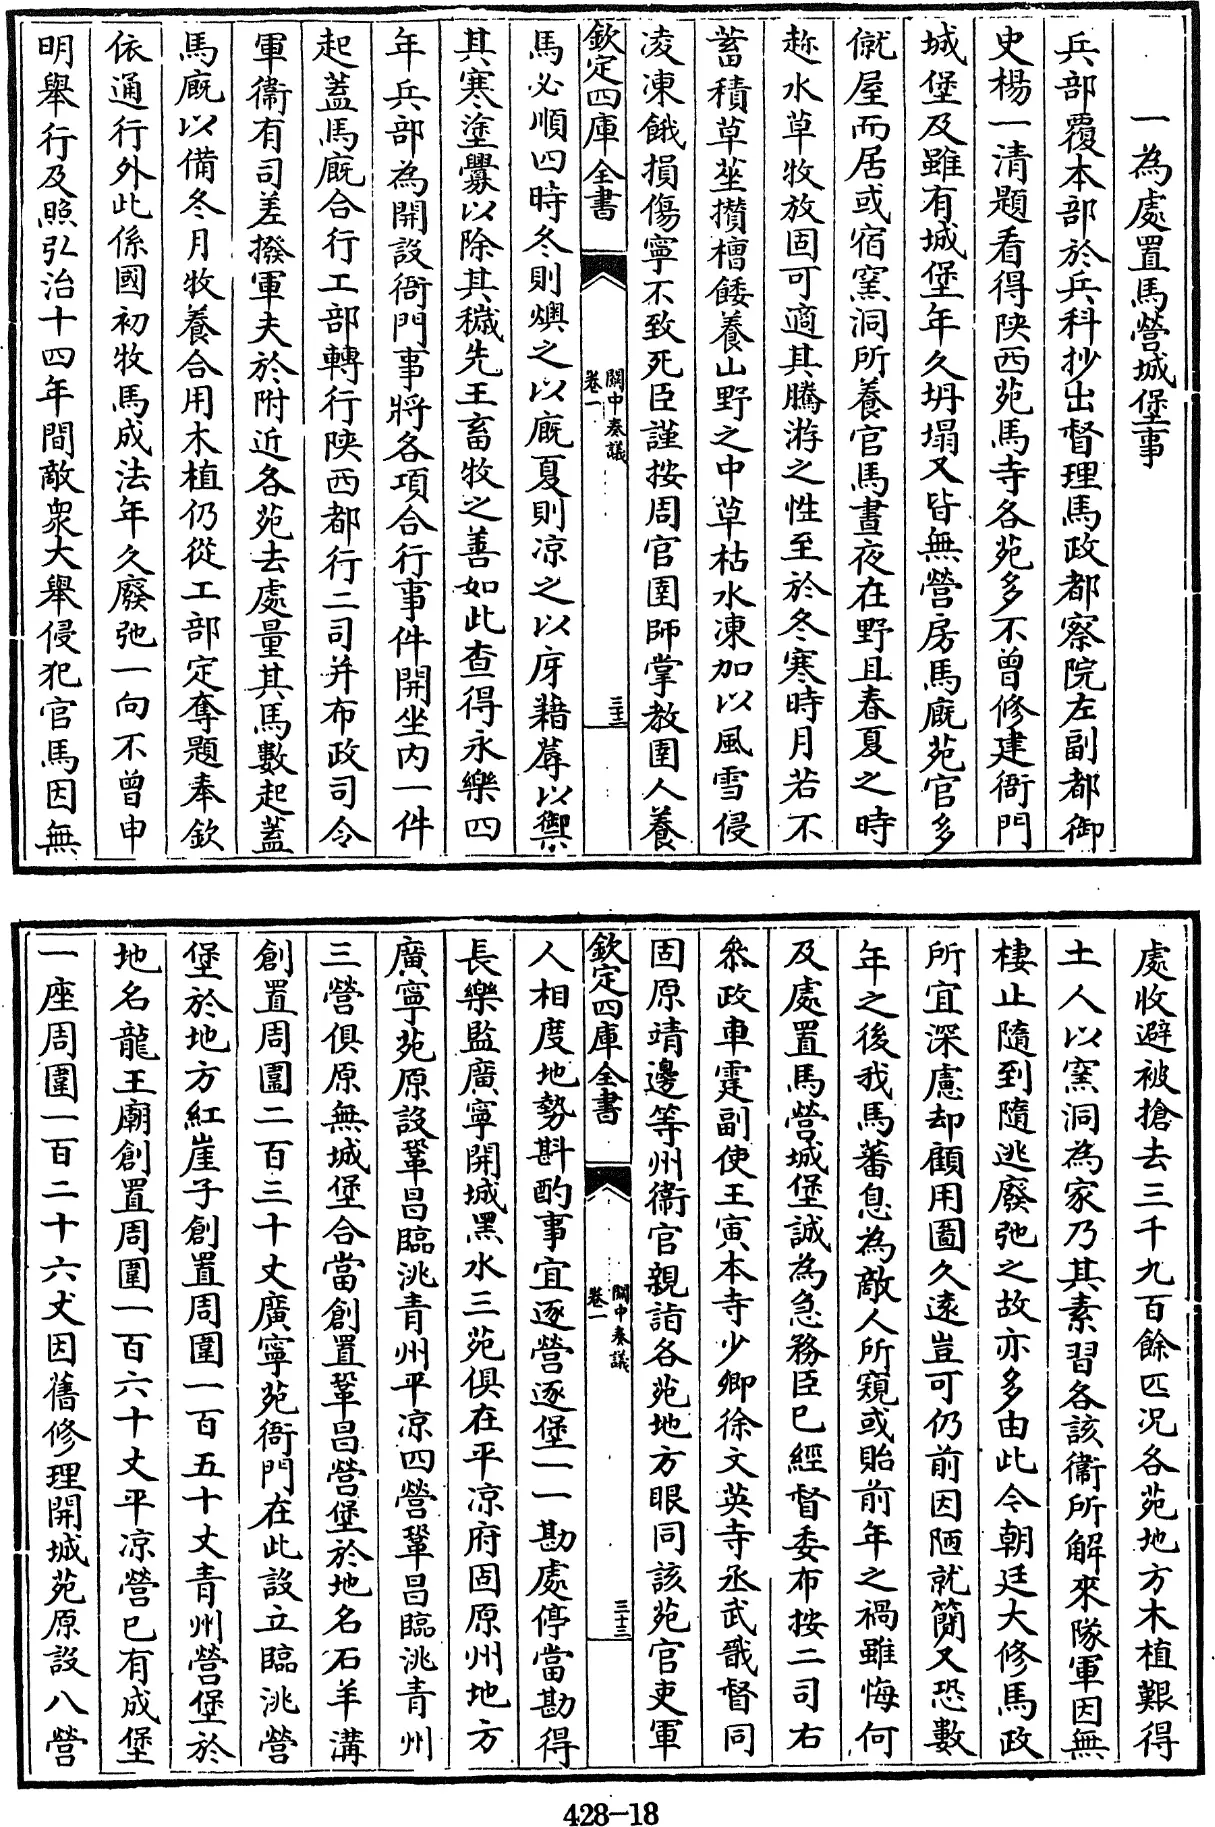 一為處置馬營城堡事
兵部覆本部於兵科抄出督理馬政都察院左副都御
史楊一清題看得陝西苑馬寺各苑多不曾修建衙門
城堡及雖有城堡年久坍塌又皆無營房馬廐苑官多
僦屋而居或宿窯洞所養官馬晝夜在野且春夏之時
趂水草牧放固可適其騰游之性至於冬寒時月若不
蓄積草莝攢槽餧養山野之中草枯水凍加以風雪侵
凌凍餓損傷寧不致死臣謹按周官圉師掌教圉人養
欽定四庫全書
關中奏議
卷一
三十二
馬必順四時冬則燠之以廐夏則凉之以庌藉蓐以禦
其寒塗釁以除其穢先王畜牧之善如此查得永樂四
年兵部為開設衙門事將各項合行事件開坐内一件
起蓋馬廐合行工部轉行陝西都行二司并布政司令
軍衛有司差撥軍夫於附近各苑去處量其馬數起蓋
馬廐以備冬月牧養合用木植仍從工部定奪題奉欽
依通行外此係國初牧馬成法年久廢弛一向不曾申
明舉行及照弘治十四年間敵衆大舉侵犯官馬因無
處收避被搶去三千九百餘匹况各苑地方木植艱得
土人以窯洞為家乃其素習各該衛所解來隊軍因無
棲止隨到隨逃廢弛之故亦多由此今朝廷大修馬政
所宜深慮却顧用圖久遠豈可仍前因陋就簡又恐數
年之後我馬蕃息為敵人所窺或貽前年之禍雖悔何
及處置馬營城堡誠為急務臣已經督委布按二司右
叅政車霆副使王寅本寺少卿徐文英寺丞武戩督同
固原靖邊等州衛官親詣各苑地方眼同該苑官吏軍
欽定四庫全書
關中奏議
卷一
三十三
人相度地勢斟酌事宜逐營逐堡一一勘處停當勘得
長樂監廣寧開城黑水三苑俱在平凉府固原州地方
廣寧苑原設鞏昌臨洮青州平凉四營鞏昌臨洮青州
三營俱原無城堡合當創置鞏昌營堡於地名石羊溝
創置周圍二百三十丈廣寧苑衙門在此設立臨洮營
堡於地方紅崖子創置周圍一百五十丈青州營堡於
地名龍王廟創置周圍一百六十丈平凉營已有成堡
一座周圍一百二十六丈因舊修理開城苑原設八營
428-18